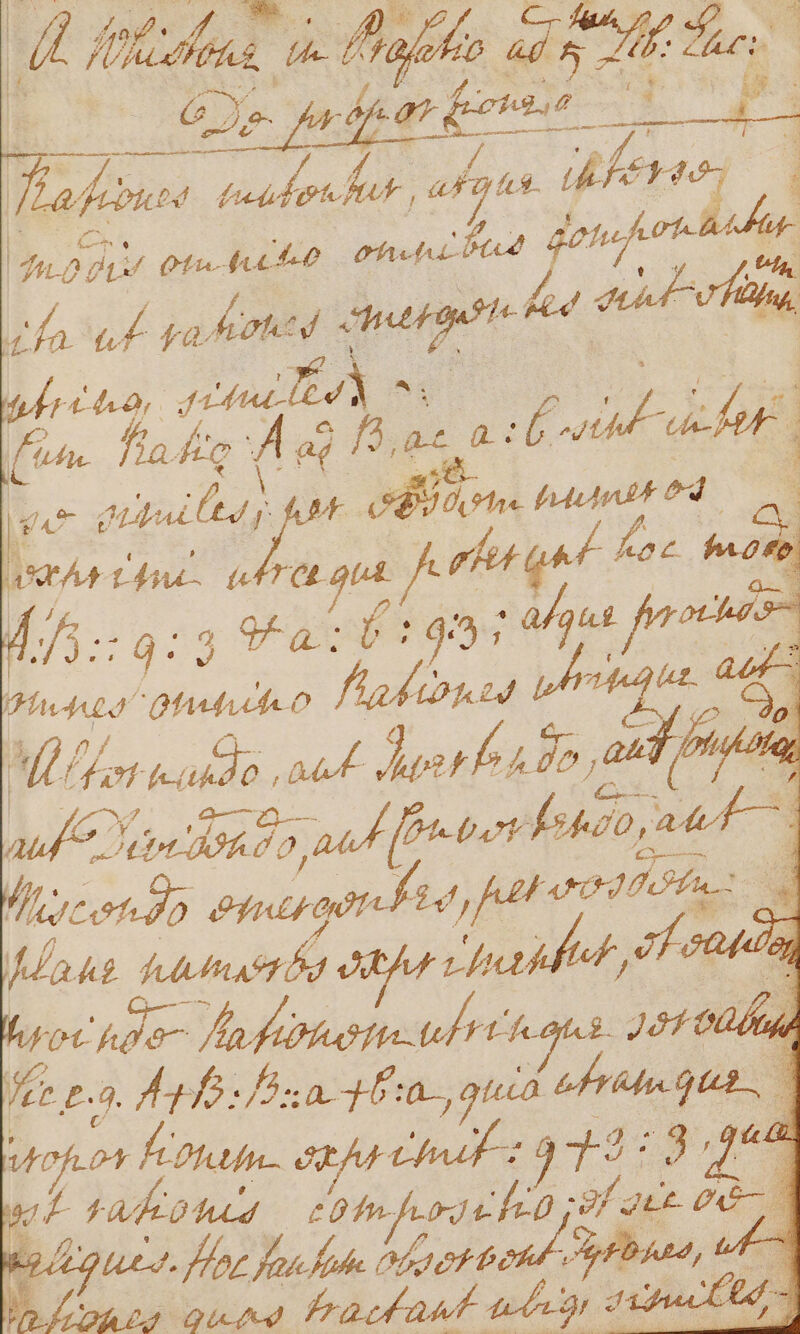 A Whistone in Præfatio ad 5tum Lib: Euc:
De proportione
Rationes mutentur, atque inter se
modis omnino omnibus componantur
ita ut rationes emergentes sint etiam
utrinq, similes
Cum Ratio A ad B, ac a : b sint inter
se similes; per eosdem numeros
exprimi utræque poterunt hoc modo
A:B :: 9 : 3 & a : b : 9:3; atque proinde
omnes omnino Rationes utrinque aut
Alternando, aut Invertendo, aut Componendo
aut Dividendo, aut Convertendo, aut
Miscendo emergentes, per eosdem
plane numeros exprimentur, et eandem
proinde Rationem utrinque servabunt
Sic e.g. A+B:B::a+b:a, quia utramque
proportionem exprimit: 9+3 : 3, quæ
est rationis compositio; et sic de
reliquis. Hoc tantum observent Tyrones, ut
rationes quas tractant ubiq, similes,